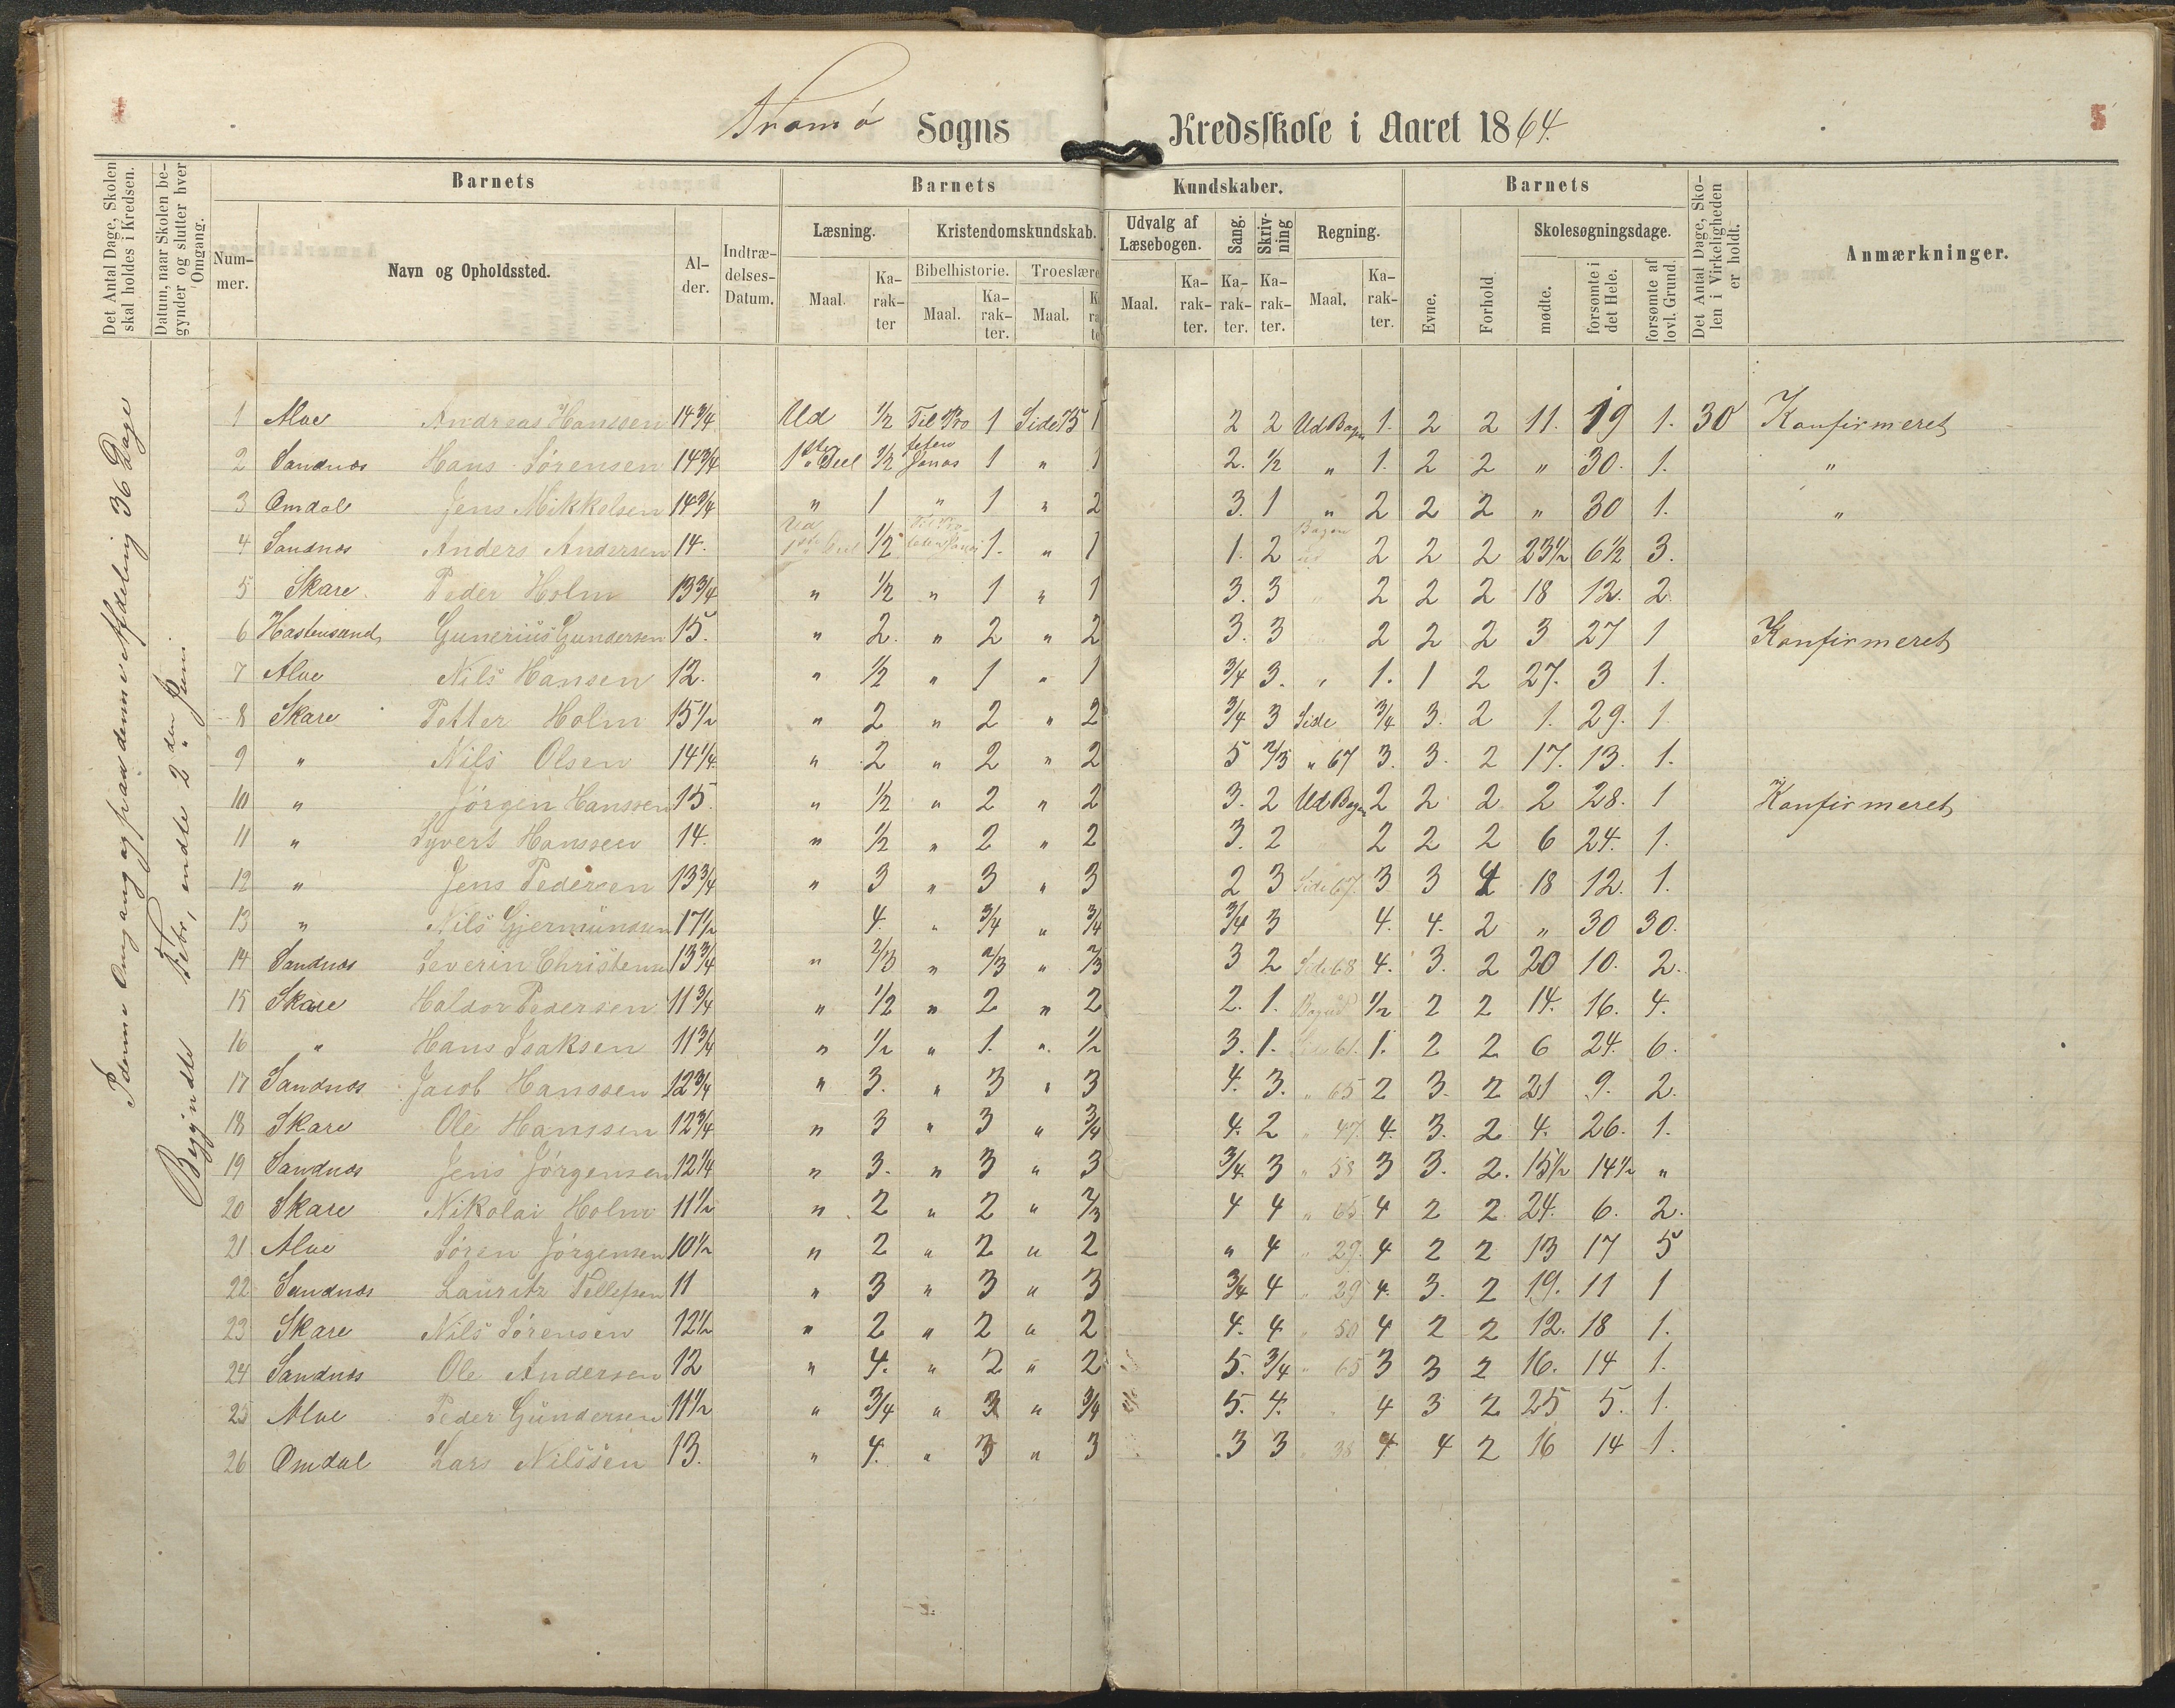 Tromø Sogns Kredsskole i Aaret 1864.
5
Det Antal Dage, Skolen skal holdes i Kredsen.
Datum, naar Skolen begynder og slutter hver Omgang.
Barnets
Barnets
Kundskaber.
Barnets
Det Antal Dage, Skolen i Virkeligheden er holdt.
Anmærkninger.
Nummer.
Navn og Opholdssted.
Alder.
Indtrædelses-Datum.
Læsning.
Kristendomskundskab.
Udvalg af Læsebogen.
Sang.
Skrivning
Regning.
Evne.
Forhold
Skolesøgningsdage.
Bibelhistorie.
Troeslære
Maal. Karakter Maal. Karakter. Maal.
Maal. Karakter. Karakter. Karakter. Maal. Karakter.
mødte. forsømte i det Hele. forsømte af lovl. Grund.
Omgang og paa denne Afdeling 36 Dage
Begyndte Febr, endte 2den Juni.
1 Alve Andreas Hanssen 14 3/4 Ud 1/2 Til Pro 1 Side 75 1 2 2 Ud Bogen 1. 2 2 11. 19 1. 30 Konfirmeret
2 Sandnæs Hans Sørensen 14 3/4 1ste Deel 1/2 feten Jonas 1 " 1 2. 1/2 " 1. 2 2 " 30. 1. "
3 Omdal Jens Mikkelsen 14 3/4 " 1 " 1 " 2 3. 1 " 2 2 2 " 30 1. "
4 Sandnæs Anders Andersen 14. Ud 1ste Deel 1/2 1. " 1 1. 2 Bogen ud 2 2 2 23 1/2 6 1/2 3.
5 Skare Peder Holm 13 3/4 " 1/2 " 1 " 1 3. 3 2 2 2 18 12. 2.
6 Hastensund Gunerius Gundersen 15. " 2. " 2 " 2 3. 3 2 2 2 3 27 1 Konfirmeret
7 Alve Nils Hansen 12. " 1/2 " 1 " 1 3/4 3. " 1. 1 2 27. 3 1.
8 Skare Petter Holm 15 1/2 " 2 " 2 " 2 3/4 3 Side 3/4 3. 2 1. 29. 1
9 " Nils Olsen 14 1/4 " 2 " 2 " 2 5 2/3 " 67 3. 3. 2 17. 13. 1.
10 " Jørgen Hanssen 15. " 1/2 " 2 " 2 3. 2 Ud Bogen 2 2 2 2 28. 1 Konfirmeret
11 " Syvert Hanssen 14. " 1/2 " 2 " 2 3. 2 2 2 2 6 24. 1.
12 " Jens Pedersen 13 3/4 " 3 " 3 " 3 2 3 Side 67. 3 3 4 18 12. 1.
13 " Nils Gjermundsen 17 1/2 4. " 3/4 " 3/4 3/4 3 4. 4. 2 " 30 30.
14 Sandnæs Severin Christensen 13 3/4 " 2/3 " 2/3 " 2/3 3 2 Side 68 4. 3. 2 20 10. 2.
15 Skare Haldor Pedersen 11 3/4 " 1/2 " 2 " 2 2. 1. Bog ud 1/2 2 2 14. 16. 4.
16 " Hans Isaksen 11 3/4 " 1/2 " 1. " 1/2 3. 1. 61. 1. 2 2 6 24. 6.
17 Sandnæs Jacob Hanssen 12 3/4 " 3. " 3 " 3 4. 3. " 65 2 3. 2 21 9. 2.
18 Skare Ole Hanssen 12 3/4 " 3 " 3 " 3/4 4. 2 " 47. 4. 3. 2 4. 26. 1.
19 Sandnæs Jens Jørgensen 12 1/4 " 3. " 3 " 3 3/4. 3 " 58 3 3. 2. 15 1/2 14 1/2 "
20 Skare Nikolai Holm 11 1/2 " 2 " 2 " 2/3 4 4 " 65 4 2 2 24. 6. 2.
21 Alve Søren Jørgensen 10 1/2 " 2 " 2 " 2 " 4 " 29. 4 2 2 13 17 5
22 Sandnæs Lauritz Tellefsen 11 " 3 " 3 " 3 3/4 4 " 29 4. 3. 2 19. 11 1
23 Skare Nils Sørensen 12 1/2 " 2 " 2 " 2 4. 4 " 50 4 2 2 12. 18 1.
24 Sandnæs Ole Andersen 12 " 4. " 2 " 2 5. 3/4 " 65 3 3 2 16. 14 1.
25 Alve Peder Gundersen 11 1/2 " 3/4 " 3 " 3/4 5. 4. 4 3 2 25 5. 1.
26 Omdal Lars Nilssen 13. " 4. " 3 " 3 3 3 " 38 4 4 2 16 14 1.